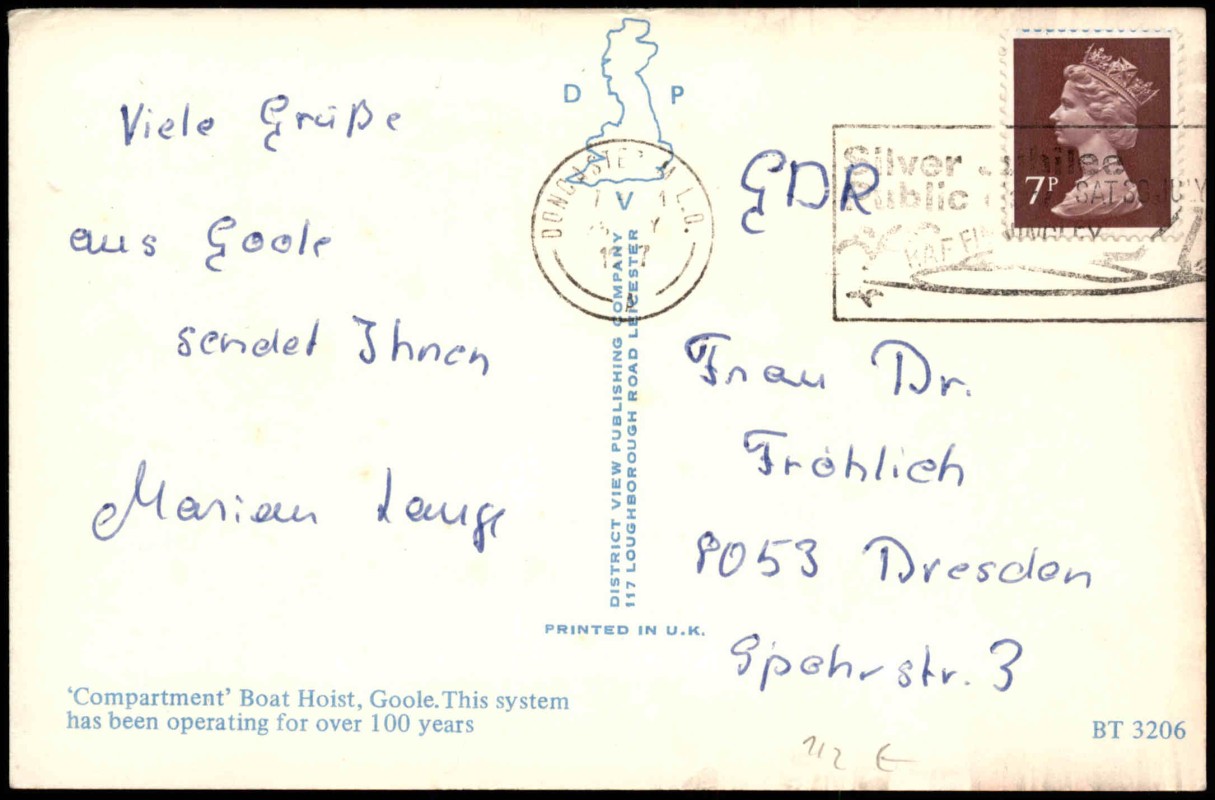 Viele Grüße
aus Goole
sendet Ihnen
Marian Lange
'Compartment' Boat Hoist, Goole. This system
has been operating for over 100 years
D P
V
DISTRICT VIEW PUBLISHING COMPANY
117 LOUGHBOROUGH ROAD LEICESTER
PRINTED IN U.K.
DONCASTER
7P
Silver Jubilee
Public
SAT 30 JULY
RAF FINNINGLEY
GDR
Frau Dr.
Fröhlich
8053 Dresden
Spohrstr. 3
BT 3206